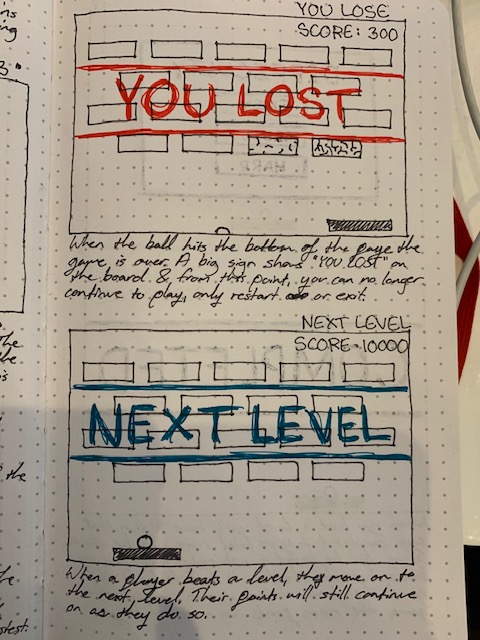 YOU LOSE
SCORE: 300
YOU LOST
When the ball hits the bottom of the page the
game is over. A big sign shows "YOU LOST" on
the board & from this point, you can no longer
continue to play, only restart or exit.
NEXT LEVEL
SCORE:10000
NEXT LEVEL
When a player beats a level, they move on to
the next level. Their points will still continue
on as they do so.